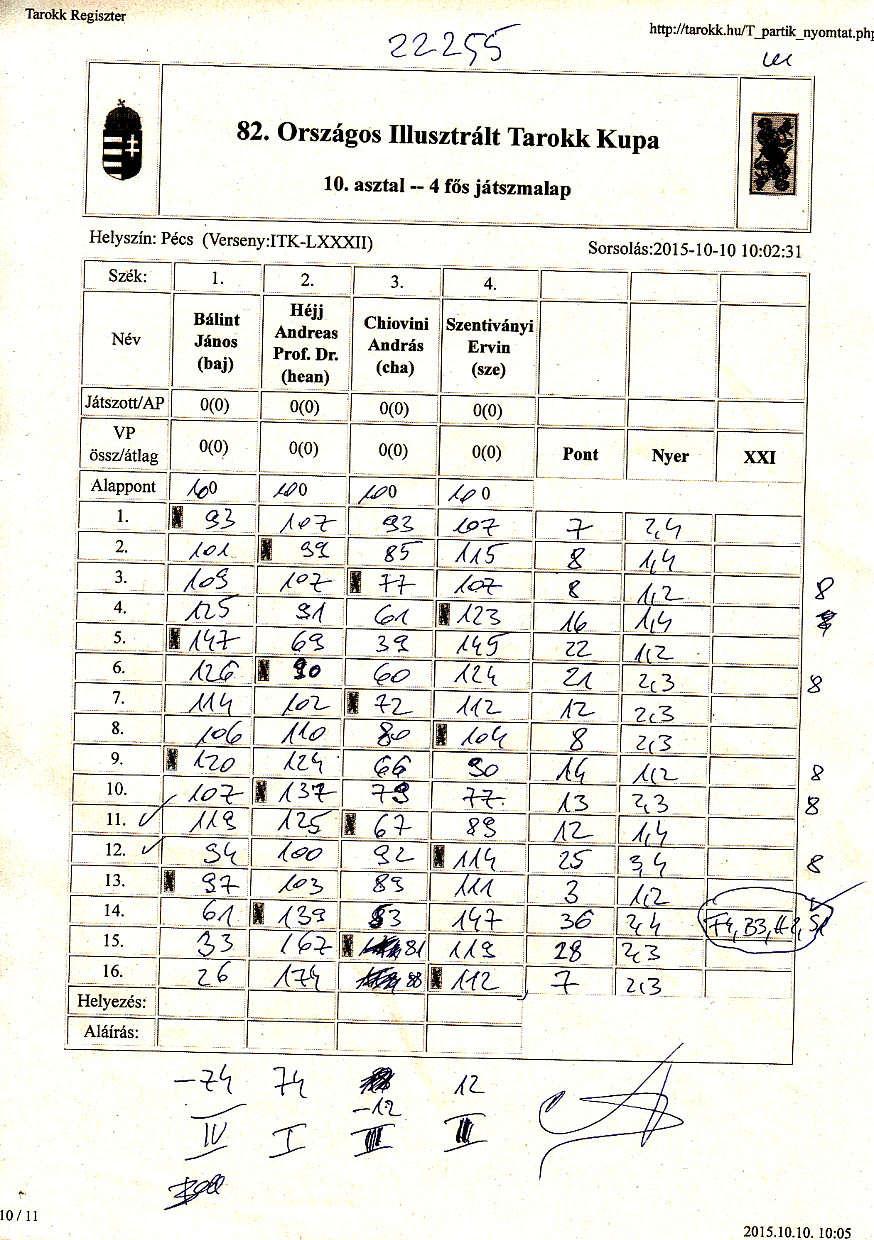 Tarokk Regiszter
http://tarokk.hu/T_partik_nyomtat.php
22255
82. Országos Illusztrált Tarokk Kupa
10. asztal -- 4 fős játszmalap
Helyszín: Pécs (Verseny:ITK-LXXXII)
Sorsolás:2015-10-10 10:02:31
Szék: 1. 2. 3. 4.
Név Bálint János (baj) Héjj Andreas Prof. Dr. (hean) Chiovini András (cha) Szentiványi Ervin (sze)
Játszott/AP 0(0) 0(0) 0(0) 0(0)
VP össz/átlag 0(0) 0(0) 0(0) 0(0) Pont Nyer XXI
Alappont 100 100 100 100
1. 93 107 93 107 7 2,4
2. 101 99 85 115 8 1,4
3. 109 107 77 107 8 1,2 8
4. 125 91 61 123 16 1,4
5. 147 69 39 145 22 1,2
6. 126 90 60 124 21 2,3 8
7. 114 102 72 112 12 2,3
8. 106 110 80 104 8 2,3
9. 120 124 66 90 14 1,2 8
10. 107 137 79 77 13 2,3 8
11. 119 125 67 89 12 1,4
12. 94 100 92 114 25 3,4 8
13. 97 103 89 111 3 1,2
14. 61 139 53 147 36 2,4 F4, B3, H2, S1
15. 33 167 81 119 28 2,3
16. 26 174 88 112 7 2,3
Helyezés:
Aláírás:
-74 74 -12 12
IV I III II
10 / 11
2015.10.10. 10:05